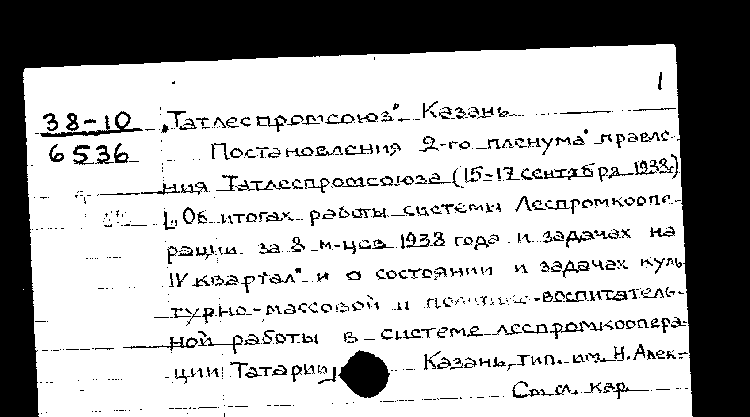 1
38-10 „Татлеспромсоюз". Казань
6536 Постановления 2-го пленума правле-
ния Татлеспромсоюза (15-17 сентября 1938.)
[„Об итогах работы системы Леспромкоопе-
рации за 8 м-цев 1938 года и задачах на
IV квартал" и о состоянии и задачах куль
турно-массовой и политико-воспитатель-
ной работы в системе леспромкоопера-
ции Татарии] Казань, тип. им. Н. Алек-
См. сл. кар.